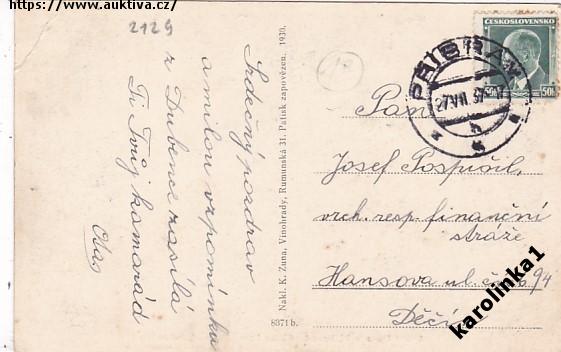 https://www.auktiva.cz/
2129
Srdečný pozdrav
a milou vzpomínku
z Dubence zasílá
Ti Tvůj kamarád
Otas
Nakl. K. Zuna, Vinohrady, Rumunská 31. Patisk zapovězen. 1930.
8871 b.
ČESKOSLOVENSKO
50h 50h
PŘÍBRAM
27.VII.37
Pan
Josef Pospíšil,
vrch. resp. finanční
stráže
Hansova ul. čís. 94
Děčín
karolinka1